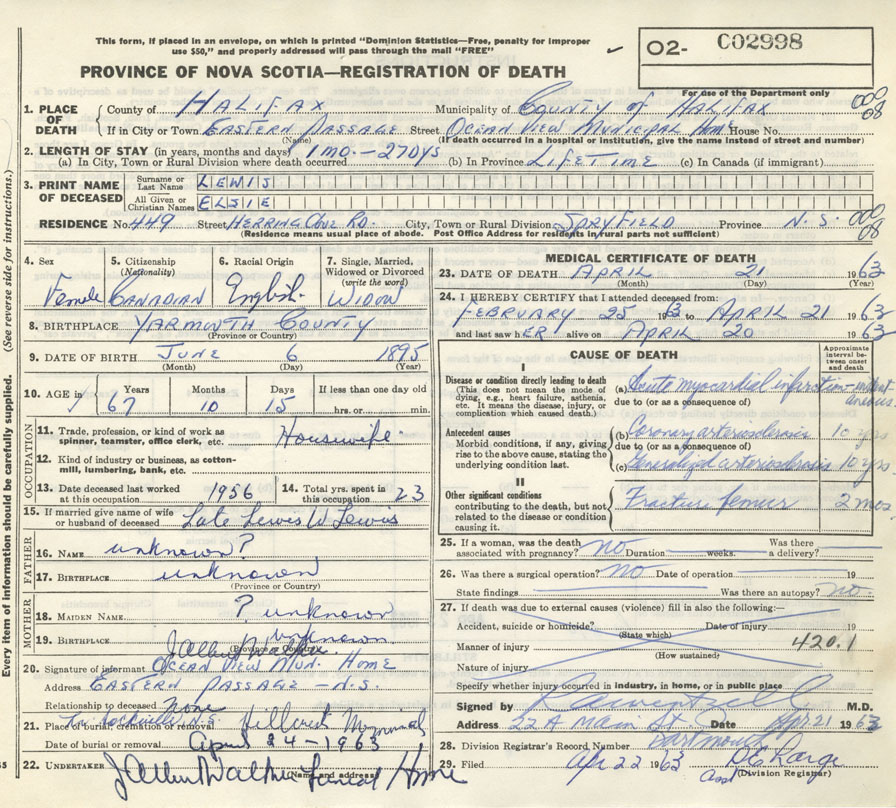 This form, if placed in an envelope, on which is printed "Dominion Statistics—Free, penalty for improper
use $50," and properly addressed will pass through the mail "FREE"
O2- C02998
PROVINCE OF NOVA SCOTIA—REGISTRATION OF DEATH
For use of the Department only
1. PLACE OF DEATH { County of HALIFAX Municipality of County of HALIFAX 000 08
If in City or Town EASTERN PASSAGE Street OCEAN VIEW MUNICIPAL HOME House No.
(Name) (If death occurred in a hospital or institution, give the name instead of street and number)
2. LENGTH OF STAY (in years, months and days) 1 mo. - 27 DAYS
(a) In City, Town or Rural Division where death occurred (b) In Province LIFETIME (c) In Canada (if immigrant)
3. PRINT NAME OF DECEASED { Surname or Last Name LEWIS
All Given or Christian Names ELSIE
RESIDENCE No. 449 Street HERRING COVE RD. City, Town or Rural Division SPRYFIELD Province N.S. 000 08
(Residence means usual place of abode. Post Office Address for residents in rural parts not sufficient)
(See reverse side for instructions.)
Every item of information should be carefully supplied.
4. Sex Female
5. Citizenship (Nationality) CANADIAN
6. Racial Origin English.
7. Single, Married, Widowed or Divorced (write the word) WIDOW
8. BIRTHPLACE YARMOUTH COUNTY
(Province or Country)
9. DATE OF BIRTH JUNE 6 1895
(Month) (Day) (Year)
10. AGE in Years 67 Months 10 Days 15 If less than one day old hrs. or min.
OCCUPATION
11. Trade, profession, or kind of work as spinner, teamster, office clerk, etc. Housewife.
12. Kind of industry or business, as cotton-mill, lumbering, bank, etc.
13. Date deceased last worked at this occupation 1956
14. Total yrs. spent in this occupation 23
15. If married give name of wife or husband of deceased Late Lewis W Lewis
FATHER
16. NAME unknown?
17. BIRTHPLACE unknown
(Province or Country)
MOTHER
18. MAIDEN NAME ? unknown
19. BIRTHPLACE unknown
(Province or Country)
20. Signature of informant OCEAN VIEW MUN. HOME
Address EASTERN PASSAGE - N.S.
Relationship to deceased none
21. Place of burial, cremation or removal Hillcrest Memorial
Date of burial or removal April 24 - 1963
22. UNDERTAKER J Allen Walker Funeral Home
(Name and address)
MEDICAL CERTIFICATE OF DEATH
23. DATE OF DEATH APRIL 21 1963
(Month) (Day) (Year)
24. I HEREBY CERTIFY that I attended deceased from:
FEBRUARY 25 1963 to APRIL 21 1963
and last saw hER alive on APRIL 20 1963
CAUSE OF DEATH
Approximate interval between onset and death
I
Disease or condition directly leading to death (This does not mean the mode of dying, e.g., heart failure, asthenia, etc. It means the disease, injury, or complication which caused death.)
(a) Acute myocardial infarction - instantaneous.
due to (or as a consequence of)
Antecedent causes
Morbid conditions, if any, giving rise to the above cause, stating the underlying condition last.
(b) Coronary arteriosclerosis 10 yrs
due to (or as a consequence of)
(c) Generalized arteriosclerosis 10 yrs.
II
Other significant conditions contributing to the death, but not related to the disease or condition causing it.
Fracture femur 2 mos
25. If a woman, was the death associated with pregnancy? no Duration weeks. Was there a delivery?
26. Was there a surgical operation? no Date of operation 19
State findings Was there an autopsy? no.
27. If death was due to external causes (violence) fill in also the following:—
Accident, suicide or homicide? Date of injury 19
(State which)
Manner of injury 420.1
(How sustained)
Nature of injury
Specify whether injury occurred in industry, in home, or in public place
Signed by M.D.
Address 22A Main St Dartmouth Date Apr 21 1963
28. Division Registrar's Record Number
29. Filed Apr 22 1963
(Division Registrar)